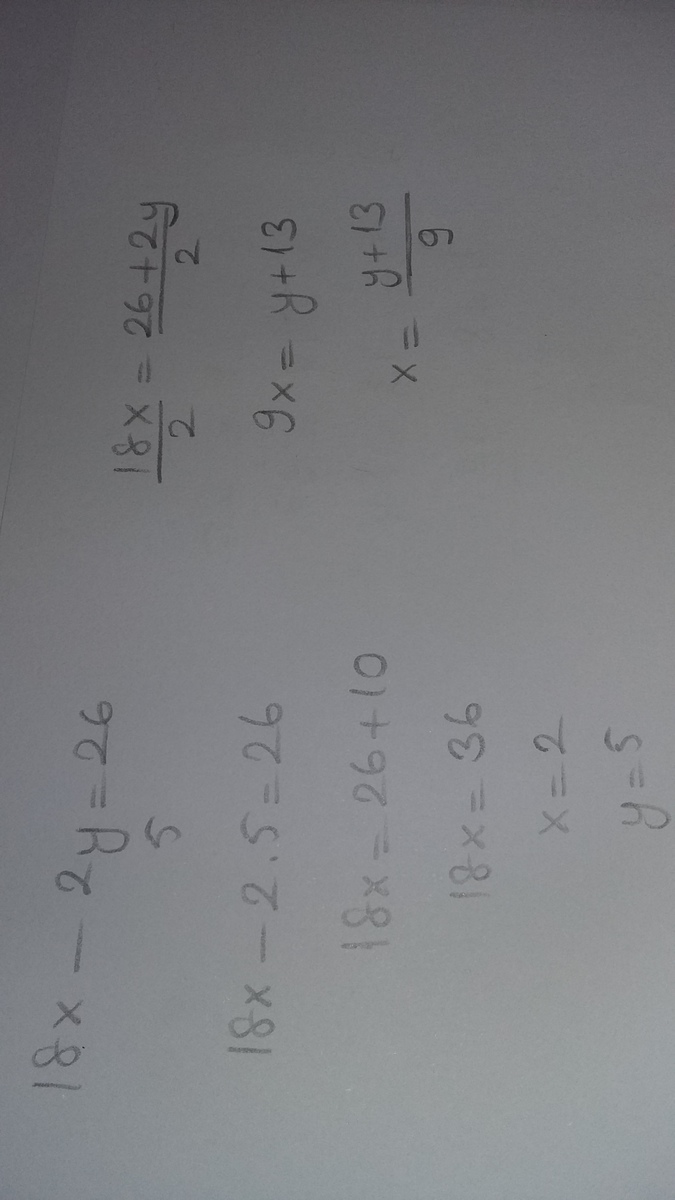 18x - 2y = 26
5
18x - 2.5 = 26
18x = 26 + 10
18x = 36
x = 2
y = 5
18x/2 = 26+2y/2
9x = y + 13
x = y+13/9